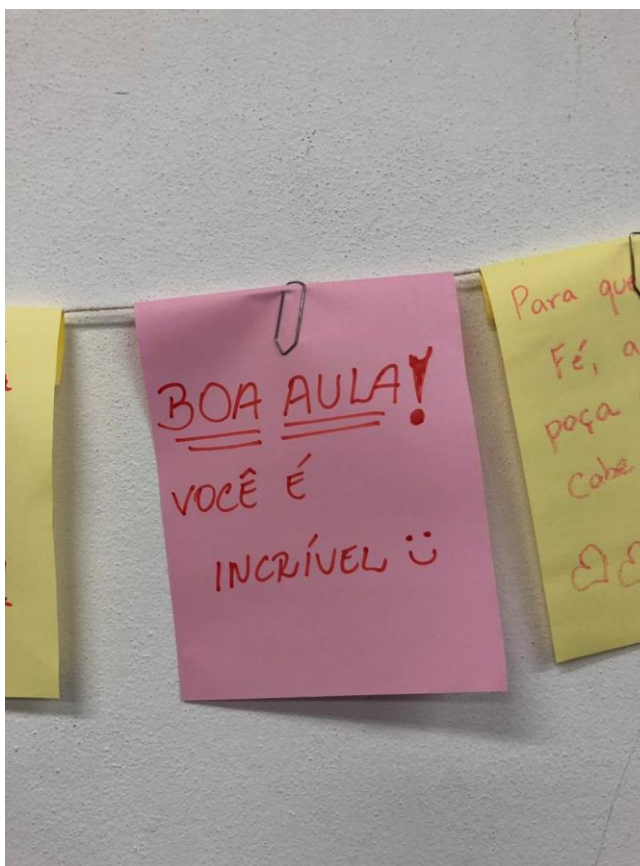 BOA AULA!
VOCÊ É
INCRÍVEL :)
Para que
Fé, a
poça
Cabe